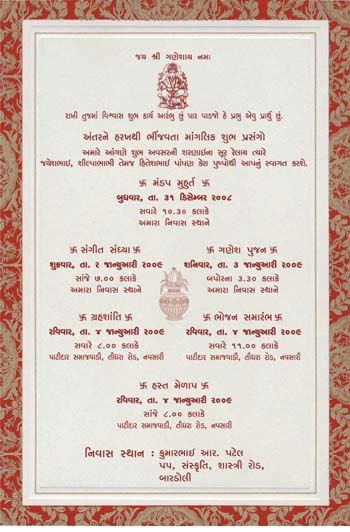 જય શ્રી ગણેશાય નમઃ
રાખી તુજમાં વિશ્વાસ શુભ કાર્ય આરંભુ છું પાર પાડજો હે પ્રભુ એવુ પ્રાર્થુ છું.
અંતરને હરખથી ભીંજવતા માંગલિક શુભ પ્રસંગો
અમારે આંગણે શુભ અવસરની શરણાઈના સૂર રેલાય ત્યારે
જયેશભાઈ, શીલ્પાભાભી તેમજ હિતેશભાઈ પાંપણ કેરા પુષ્પોથી આપનું સ્વાગત કરશે.
卐 મંડપ મુહુર્ત 卐
બુધવાર, તા. ૩૧ ડિસેમ્બર ૨૦૦૮
સવારે ૧૦.૩૦ કલાકે
અમારા નિવાસ સ્થાને
卐 સંગીત સંધ્યા 卐
શુક્રવાર, તા. ૨ જાન્યુઆરી ૨૦૦૯
સાંજે ૭.૦૦ કલાકે
અમારા નિવાસ સ્થાને
卐 ગણેશ પુજન 卐
શનિવાર, તા. ૩ જાન્યુઆરી ૨૦૦૯
બપોરના ૩.૩૦ કલાકે
અમારા નિવાસ સ્થાને
卐 ગ્રહશાંતિ 卐
રવિવાર, તા. ૪ જાન્યુઆરી ૨૦૦૯
સવારે ૮.૦૦ કલાકે
પાટીદાર સમાજવાડી, તીઘરા રોડ, નવસારી
卐 ભોજન સમારંભ 卐
રવિવાર, તા. ૪ જાન્યુઆરી ૨૦૦૯
સવારે ૧૧.૦૦ કલાકે
પાટીદાર સમાજવાડી, તીઘરા રોડ, નવસારી
卐 હસ્ત મેળાપ 卐
રવિવાર, તા. ૪ જાન્યુઆરી ૨૦૦૯
સાંજે ૮.૦૦ કલાકે
પાટીદાર સમાજવાડી, તીઘરા રોડ, નવસારી
નિવાસ સ્થાન : કુમારભાઈ આર. પટેલ
૫૫, સંસ્કૃતિ, શાસ્ત્રી રોડ,
બારડોલી